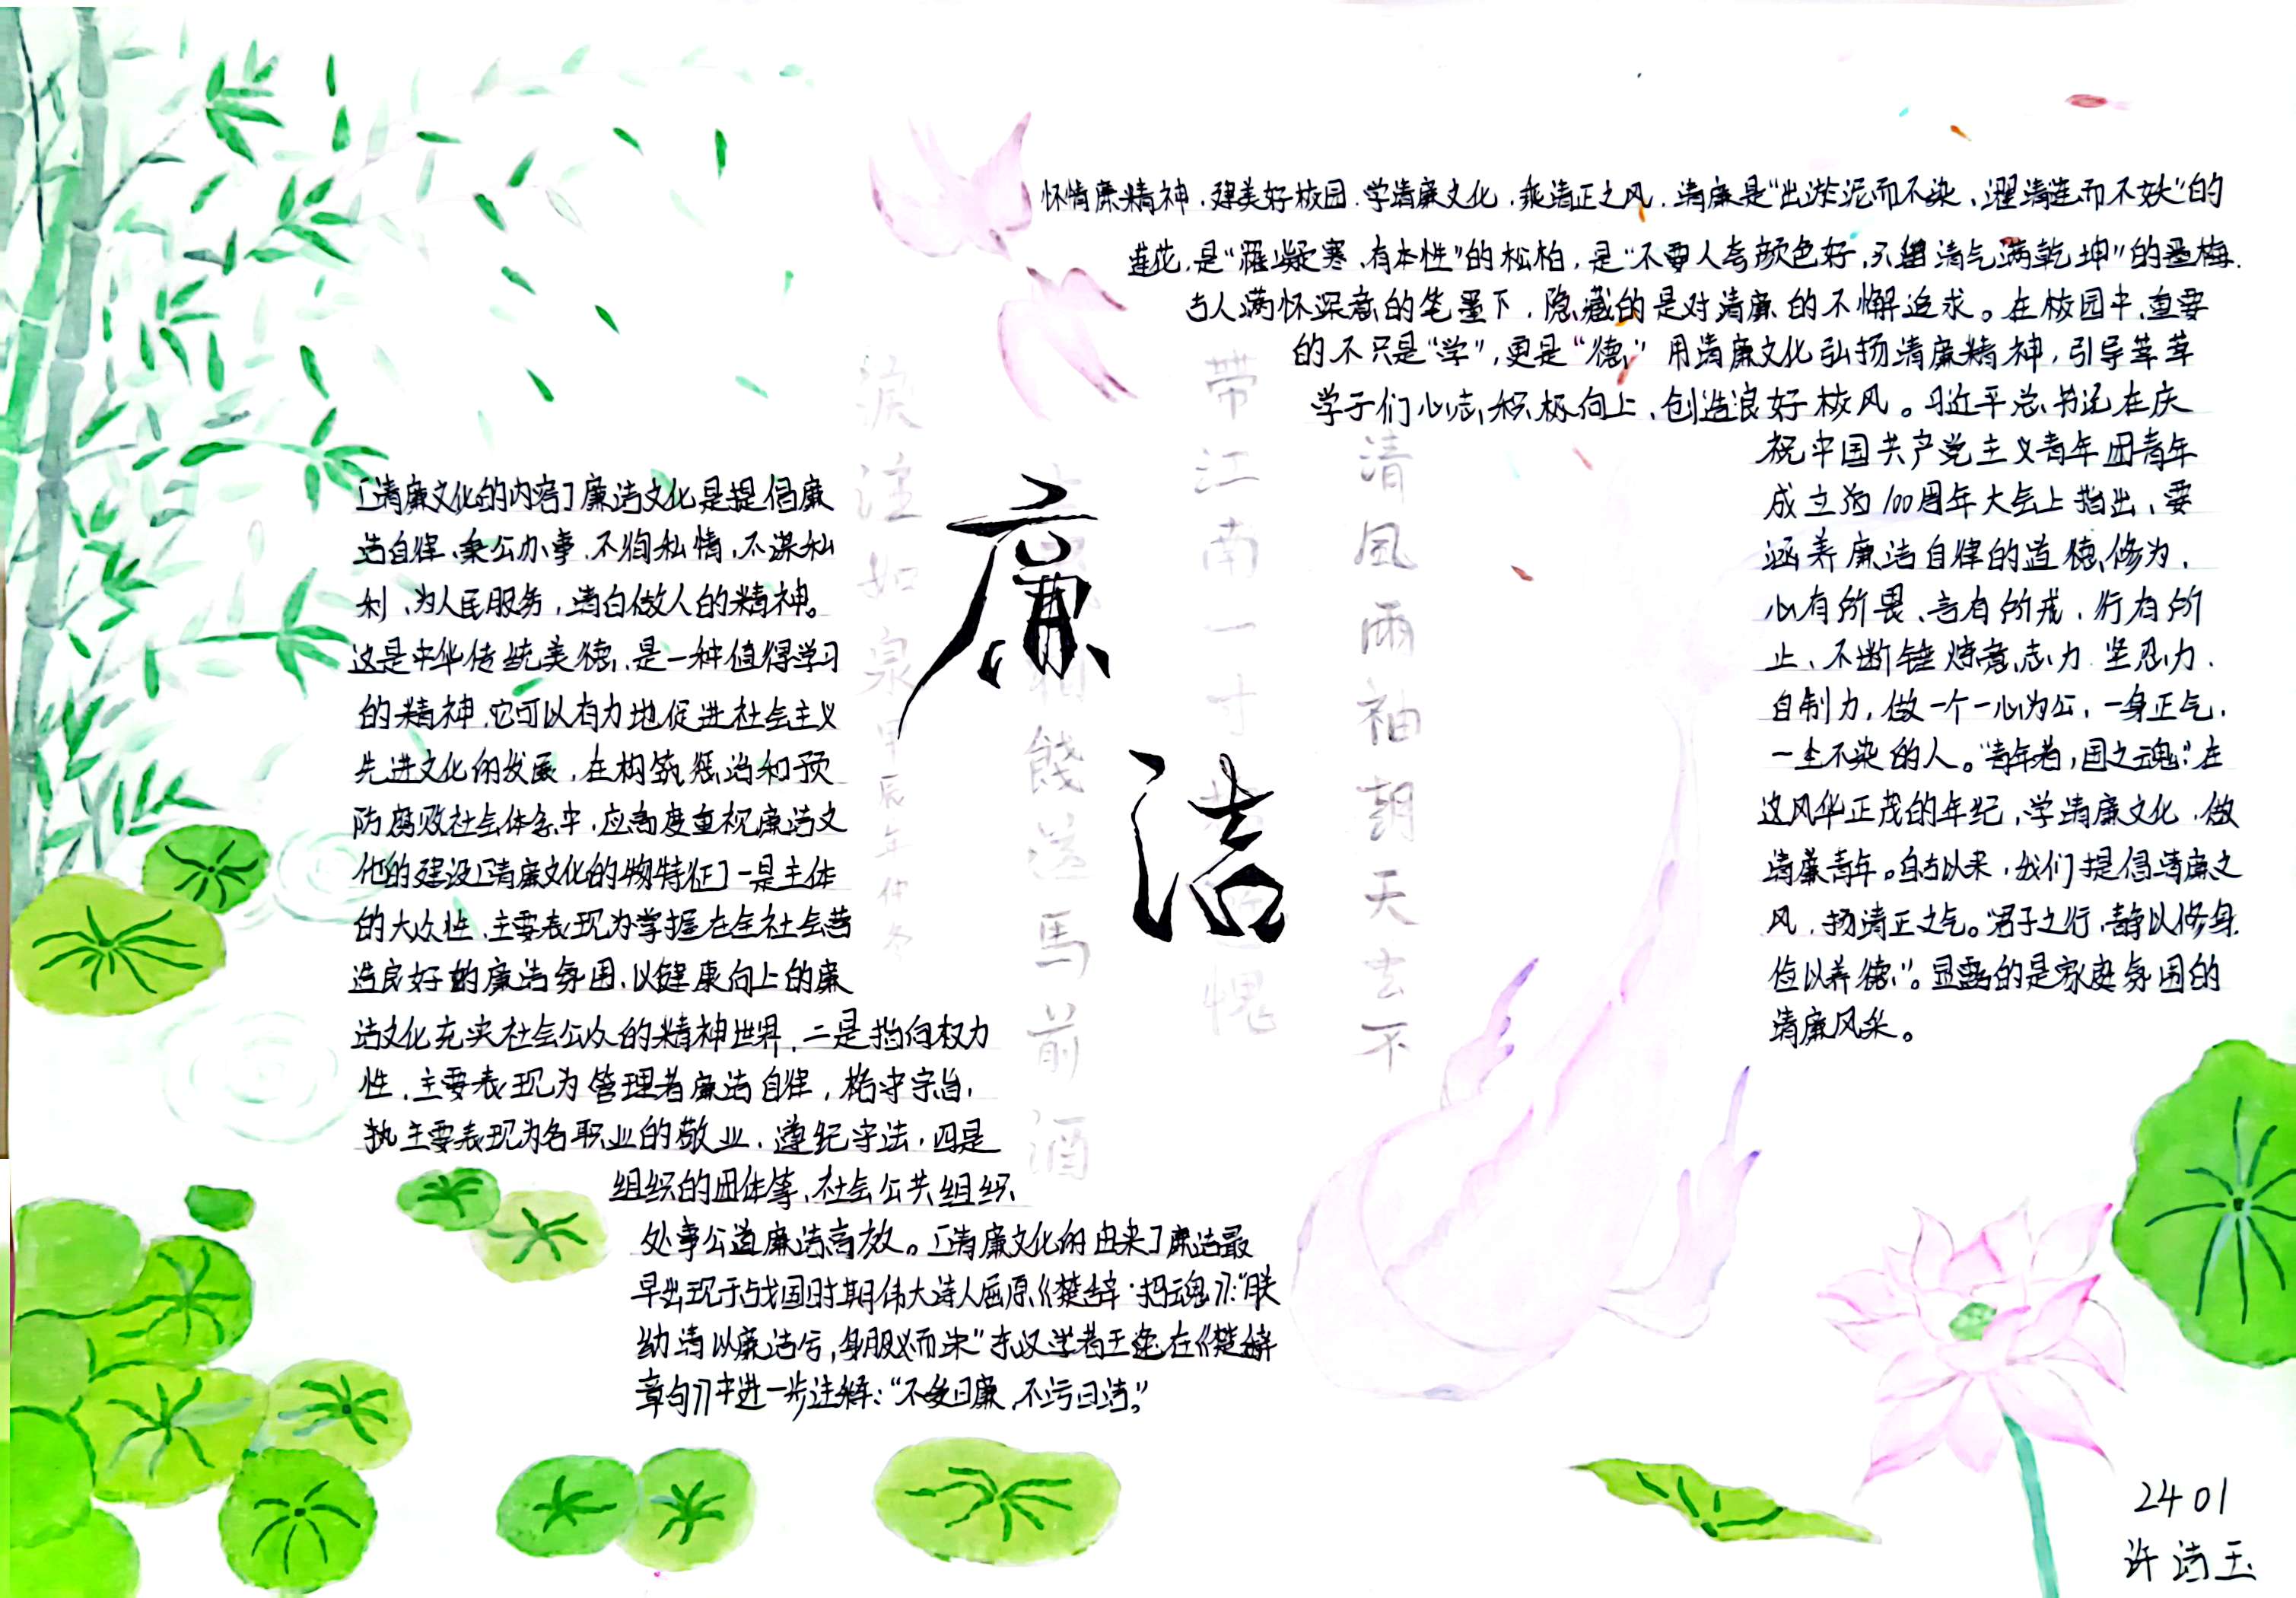 怀清廉精神，建美好校园.学清廉文化，乘清正之风，清廉是“出淤泥而不染、濯清涟而不妖”的
莲花，是“罹凝寒、有本性”的松柏，是“不要人夸颜色好，只留清气满乾坤”的墨梅.
古人满怀深意的笔墨下，隐藏的是对清廉的不懈追求。在校园中，重要
的不只是“学”，更是“德，”用清廉文化弘扬清廉精神，引导莘莘
学子们心志积极向上、创造良好校风。习近平总书记在庆
祝中国共产党主义青年团青年
成立为100周年大会上指出，要
涵养廉洁自律的道德修为，
心有所畏、言有所戒、行有所
止、不断锤炼意志力 坚忍力、
自制力，做一个一心为公，一身正气，
一尘不染的人。“青年者，国之魂”：在
这风华正茂的年纪，学清廉文化，做
清廉青年。自古以来，我们提倡清廉之
风，扬清正之气。“君子之行，静以修身
俭以养德”。显露的是家庭氛围的
清廉风采。
「清廉文化的内容」廉洁文化是提倡廉
洁自律、秉公办事、不徇私情，不谋私
利、为人民服务，清白做人的精神。
这是中华传统美德，是一种值得学习
的精神，它可以有力地促进社会主义
先进文化的发展，在构筑惩治和预
防腐败社会体系中，应高度重视廉洁文
化的建设「清廉文化的物特征」一是主体
的大众性，主要表现为掌握在全社会营
造良好的廉洁氛围，以健康向上的廉
洁文化充实社会公众的精神世界，二是指向权力
性，主要表现为管理者廉洁自律，恪守宗旨，
执主要表现为各职业的敬业，遵纪守法，四是
组织的团体等、社会公共组织
处事公道廉洁高效。「清廉文化的由来」廉洁最
早出现于战国时期伟大诗人屈原《楚辞·招魂》：“朕
幼清以廉洁兮，身服义而未”东汉学者王逸在《楚辞
章句》中进一步注解：“不受曰廉，不污曰洁。”
廉
洁
清風兩袖朝天去不
带江南一寸
愧
餞送馬前酒
淚注如泉甲辰年仲冬
2401
许洁玉